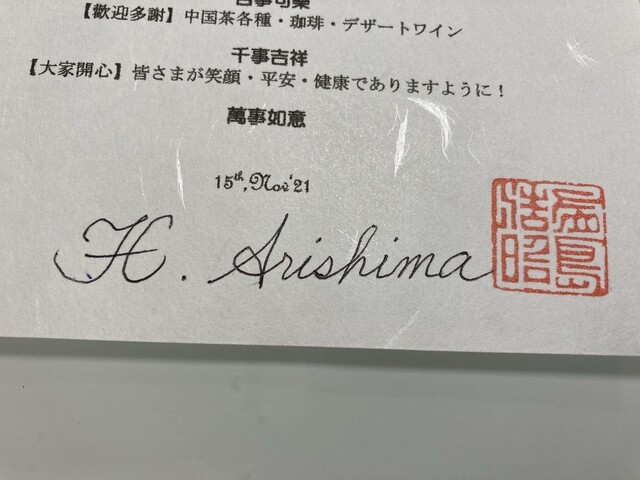 百事可樂
【歡迎多謝】中国茶各種・珈琲・デザートワイン
千事吉祥
【大家開心】皆さまが笑顔・平安・健康でありますように！
萬事如意
15th, Nov '21
H. Arishima